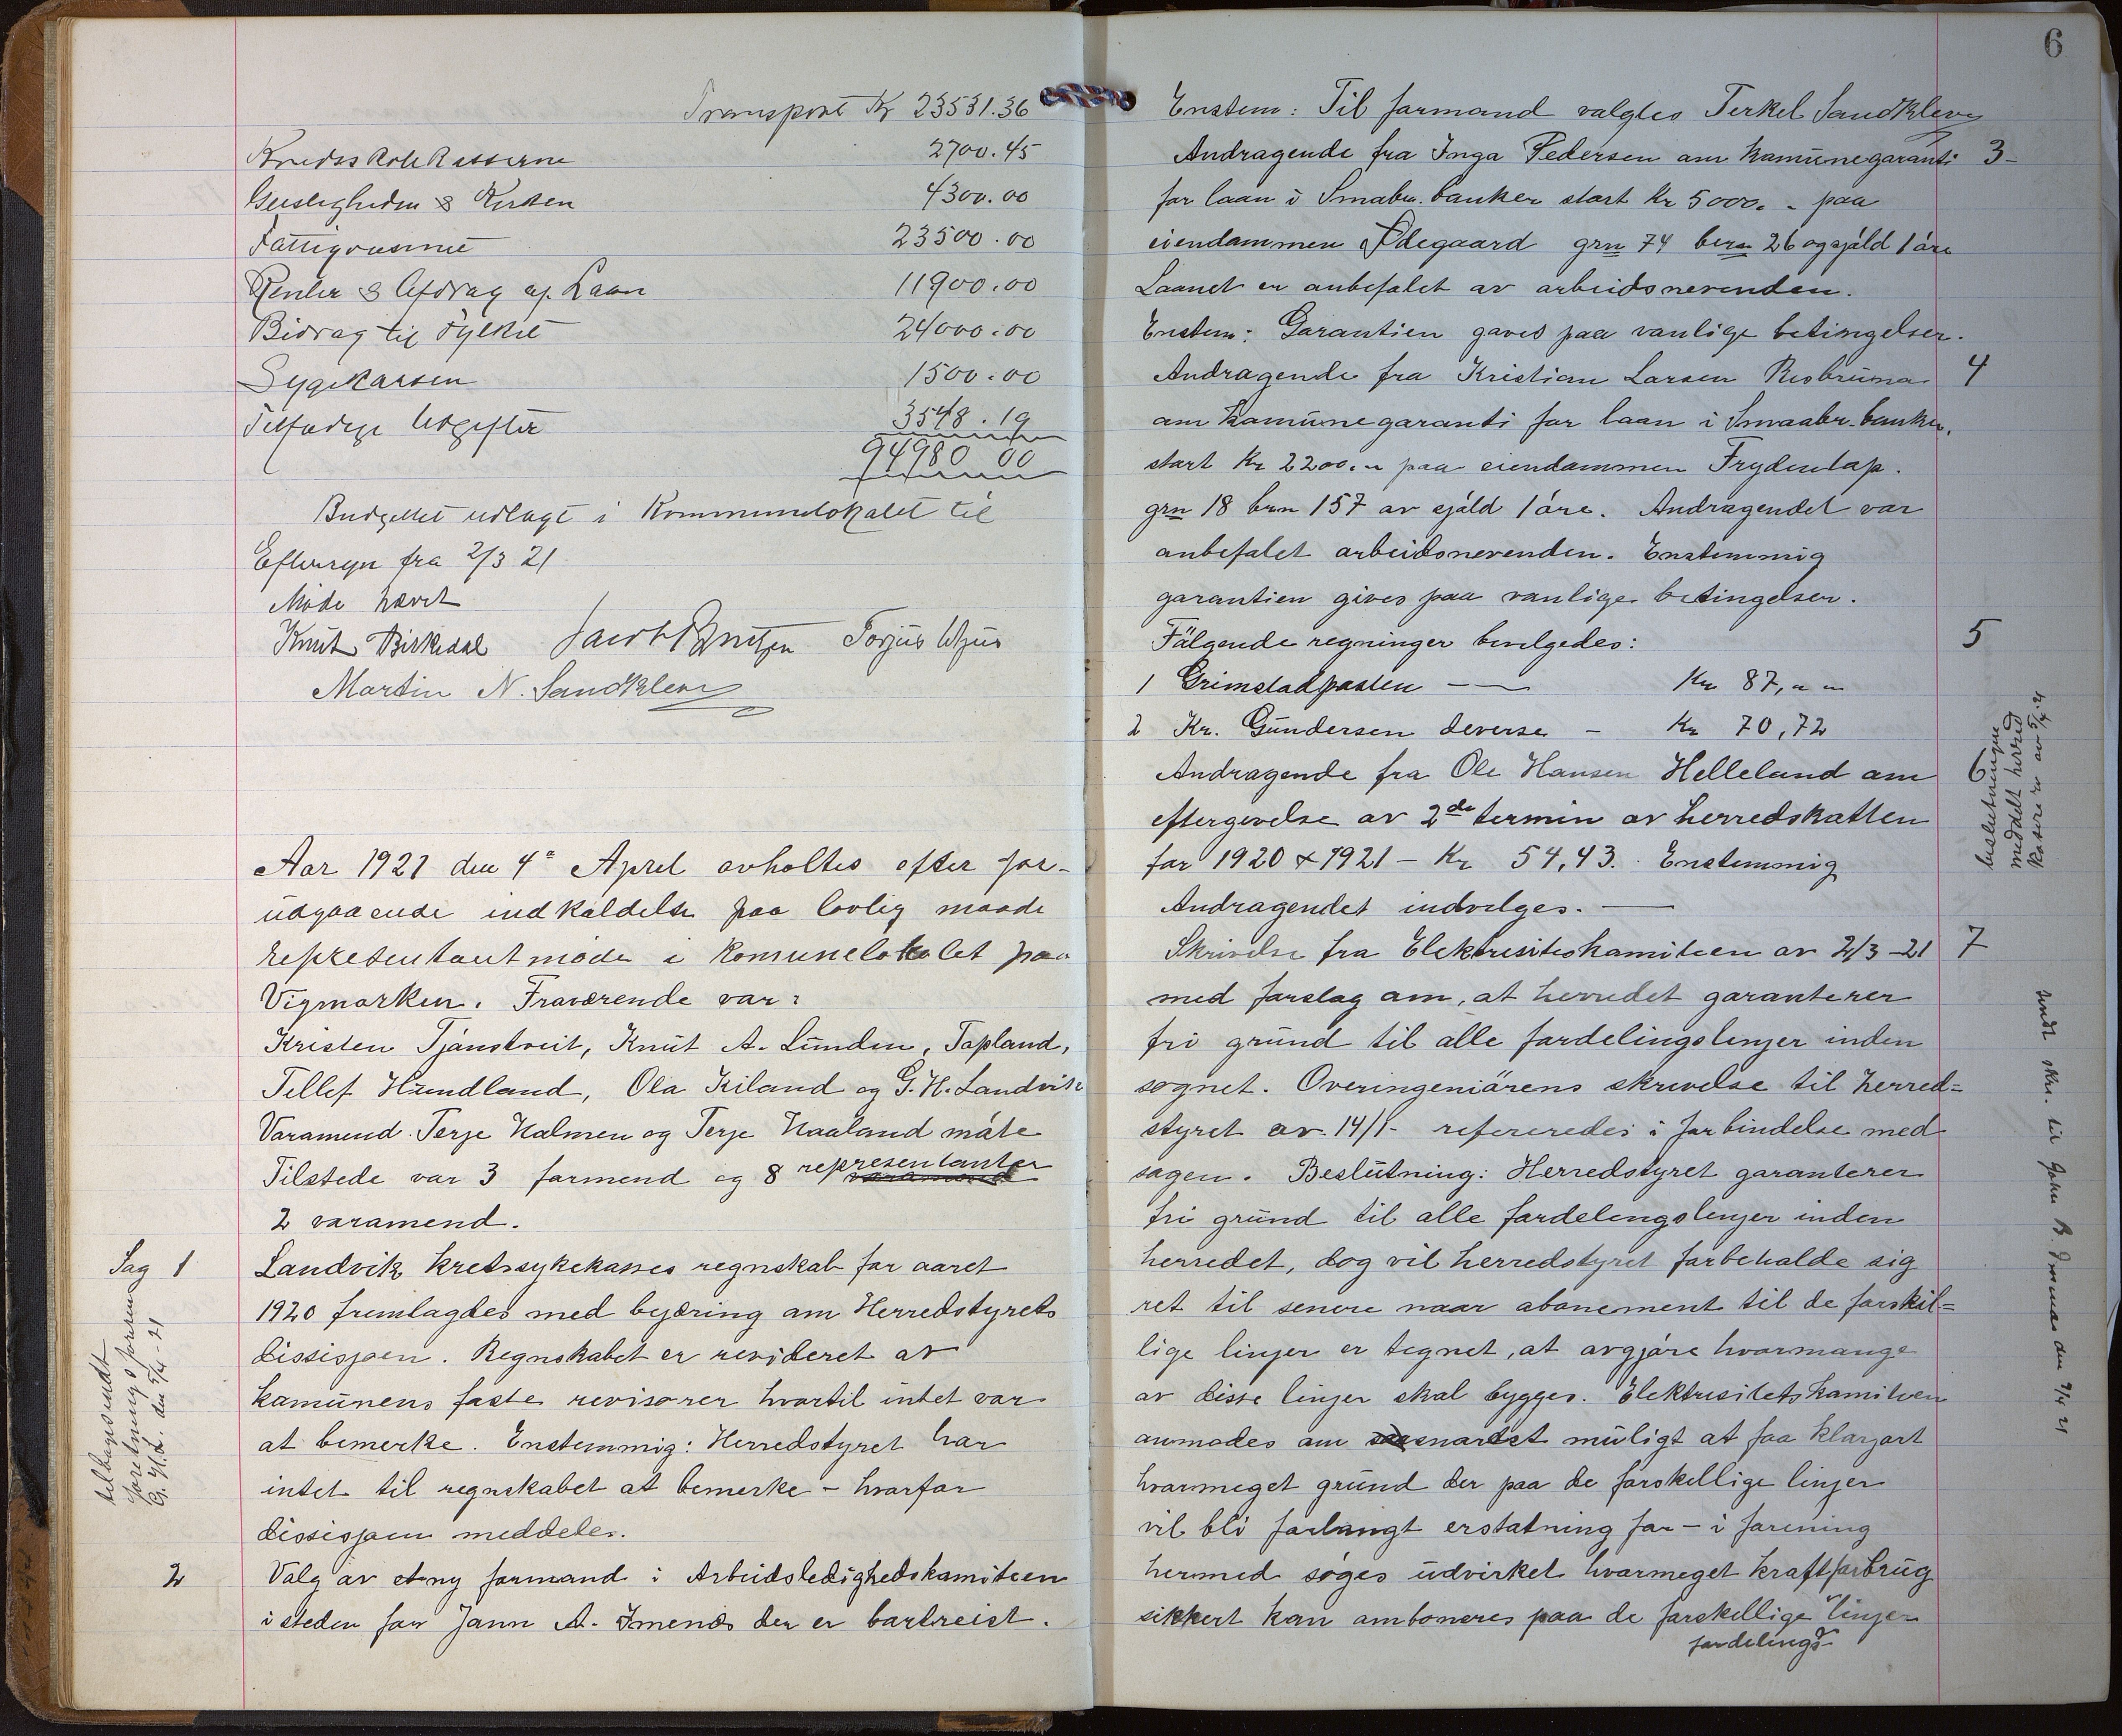 Transport Kr 23531.36
Kredsskolekasserne 2700.45
Geistligheden & Kirken 4300.00
Fattigvæsenet 23500.00
Renter & Afdrag af Laan 11900.00
Bidrag til Fylket 24000.00
Sygekassen 1500.00
Tilfædige Udgifter 3548.19
94980 00
Budgettet udlagt i Kommunelokalet til
Eftersyn fra 2/3 21
Møde hævet
Knut Birkedal Jacob Knutsen Torjus
Martin N. Sandkleiv
Aar 1921 den 4de April avholtes efter for-
udgaaende indkaldelse paa lovlig maade
representantmøde i Komunelokalet paa
Vigmarken. Fraværende var:
Kristen Tjánstveit, Knut A. Lunden, Topland,
Tellef Hundland, Ola Kiland og G. H. Landvik
Varamend Terje Halmen og Terje Haaland máte
Tilstede var 3 formend og 8 representanter
2 varamend.
Sag 1 Landvik kretssykekasses regnskab for aaret
1920 fremlagdes med begæring om Herredstyrets
dissisjoen. Regnskabet er revideret av
komunens faste revisorer hvortil intet var
at bemerke. Enstemmig: Herredstyret har
intet til regnskabet at bemerke - hvorfor
dissisjoen meddeles.
tilbagesendt
foretningsføreren
G. H. L. den 5/4-21
2 Valg av et ny formand i Arbeidsledighedskomiteen
i steden for Jann A. Imenes der er bortreist.
6
Enstem: Til formand valgtes Terkel Sandkleiv
Andragende fra Inga Pedersen om komunegaranti 3-
for laan i Smabr. banker stort kr 5000.- paa
eiendommen Ødegaard grn 74 brn 26 og sjáld 1 áre
Laanet er anbefalet av arbeidsnevenden.
Enstem: Garantien gaves paa vanlige betingelser.
Andragende fra Kristian Larsen Resbruna 4
om komunegaranti for laan i Smaabr. banken.
stort Kr 2200.- paa eiendommen Frydentop.
grn 18 brn 157 av sjáld 1 áre. Andragendet var
anbefalet arbeidsnevenden. Enstemmig
garantien gives paa vanlige betingelser.
Fälgende regninger bevilgedes: 5
1 Grimstadposten — Kr 87,--
2 Kr. Gundersen deverse - Kr 70,72
Andragende fra Ole Hansen Helleland om 6
eftergivelse av 2de termin av herredskatten
for 1920 & 1921 - Kr 54,43. Enstemmig
Andragendet indvilges. —
beslutningen
meddelt herred
kasserer av 5/4 21
Skrivelse fra Elektresiteskomiteen av 2/3-21 7
med forslag om, at herredet garanterer
fri grund til alle fordelingslinjer inden
sognet. Overingeniärens skrivelse til herred=
styret av 14/1- refereredes i forbindelse med
sagen. Beslutning: Herredstyret garanterer
fri grund til alle fordelengslinjer inden
herredet, dog vil herredstyret forbeholde sig
ret til senere naar abonement til de forskil=
lige linjer er tegnet, at avgjáre hvormange
av disse linjer skal bygges. Elektrisitetskomiteen
anmodes om snartst muligt at faa klarjort
hvormeget grund der paa de forskellige linjer
vil bli forlangt erstatning for - i forening
hermed ságes udvirket hvormeget kraftforbrug
sikkert kan amboneres paa de forskellige linjer
fordelings-
sendt skr. til John B. den 9/4 21